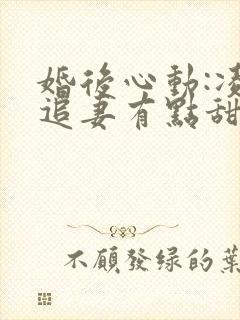 婚後心動:凌
追妻有點甜
不願發綠的葉